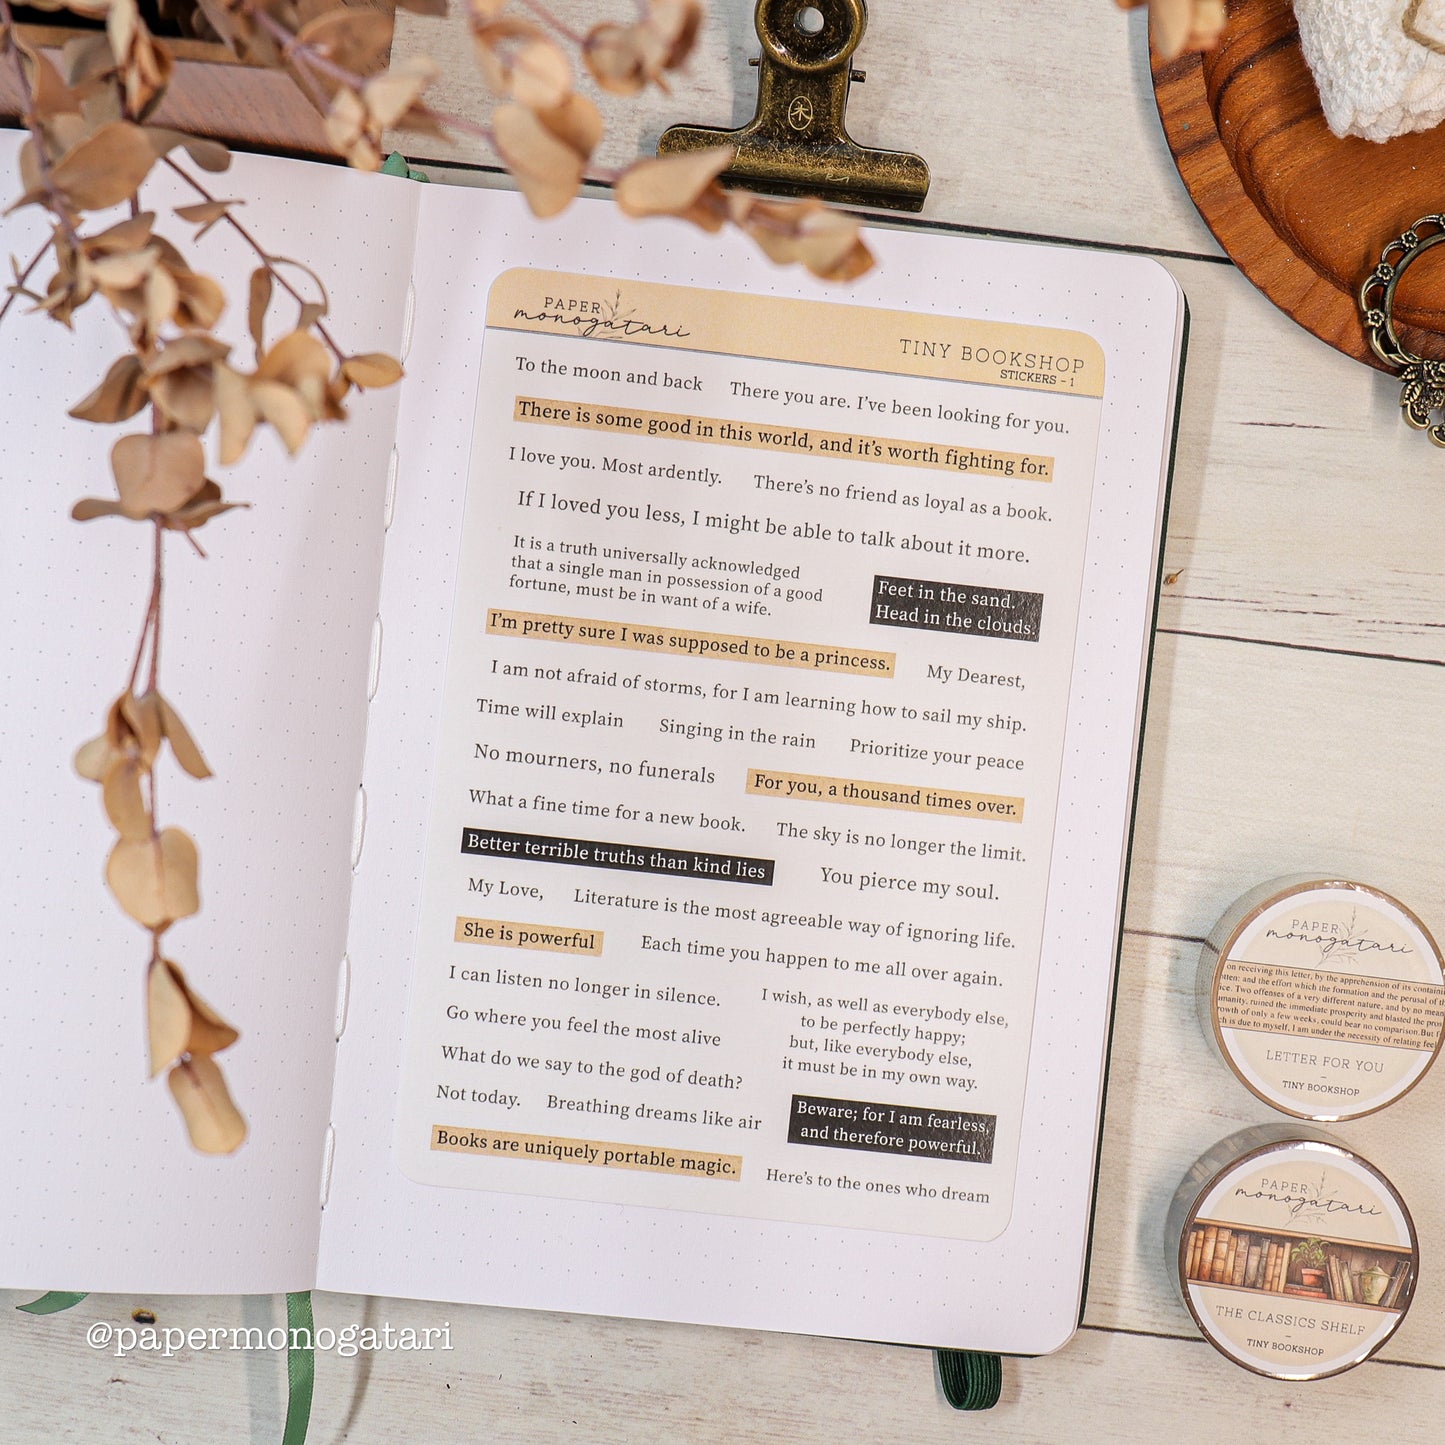 木
PAPER
monogatari
TINY BOOKSHOP
STICKERS - 1
To the moon and back
There you are. I've been looking for you.
There is some good in this world, and it's worth fighting for.
I love you. Most ardently.
There's no friend as loyal as a book.
If I loved you less, I might be able to talk about it more.
It is a truth universally acknowledged
that a single man in possession of a good
fortune, must be in want of a wife.
Feet in the sand.
Head in the clouds.
I'm pretty sure I was supposed to be a princess.
My Dearest,
I am not afraid of storms, for I am learning how to sail my ship.
Time will explain
Singing in the rain
Prioritize your peace
No mourners, no funerals
For you, a thousand times over.
What a fine time for a new book.
The sky is no longer the limit.
Better terrible truths than kind lies
You pierce my soul.
My Love,
Literature is the most agreeable way of ignoring life.
She is powerful
Each time you happen to me all over again.
I can listen no longer in silence.
I wish, as well as everybody else,
to be perfectly happy;
but, like everybody else,
it must be in my own way.
Go where you feel the most alive
What do we say to the god of death?
Not today.
Breathing dreams like air
Beware; for I am fearless,
and therefore powerful.
Books are uniquely portable magic.
Here's to the ones who dream
PAPER
monogatari
on receiving this letter, by the apprehension of its containi
tten: and the effort which the formation and the perusal of th
ice. Two offenses of a very different nature, and by no mean
umanity, ruined the immediate prosperity and blasted the pros
rowth of only a few weeks, could bear no comparison. But f
ch is due to myself, I am under the necessity of relating feel
LETTER FOR YOU
TINY BOOKSHOP
PAPER
monogatari
THE CLASSICS SHELF
TINY BOOKSHOP
@papermonogatari